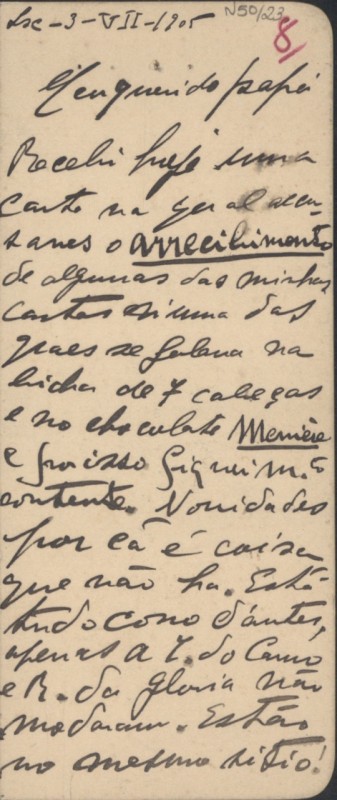 Lxc-3-VII-1905
N50/23
8
Meu querido papá
Recebi hoje uma
carta na qual acu-
savas o arrecibimento
de algumas das minhas
cartas n'uma das
quaes se falava na
bicha de 7 cabeças
e no chocolate Menière
e por isso fiquei m.to
contente. Novidades
por cá é coisa
que não ha. Está
tudo como d'antes,
apenas a T. do Camo
e R. da Gloria não
mudaram. Estão
no mesmo sitio!